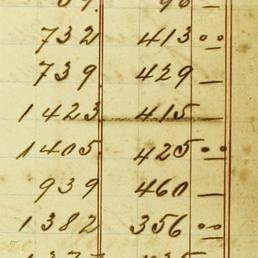 732 413 00
739 429 —
1423 415 —
1405 425 00
939 460 —
1382 356 00